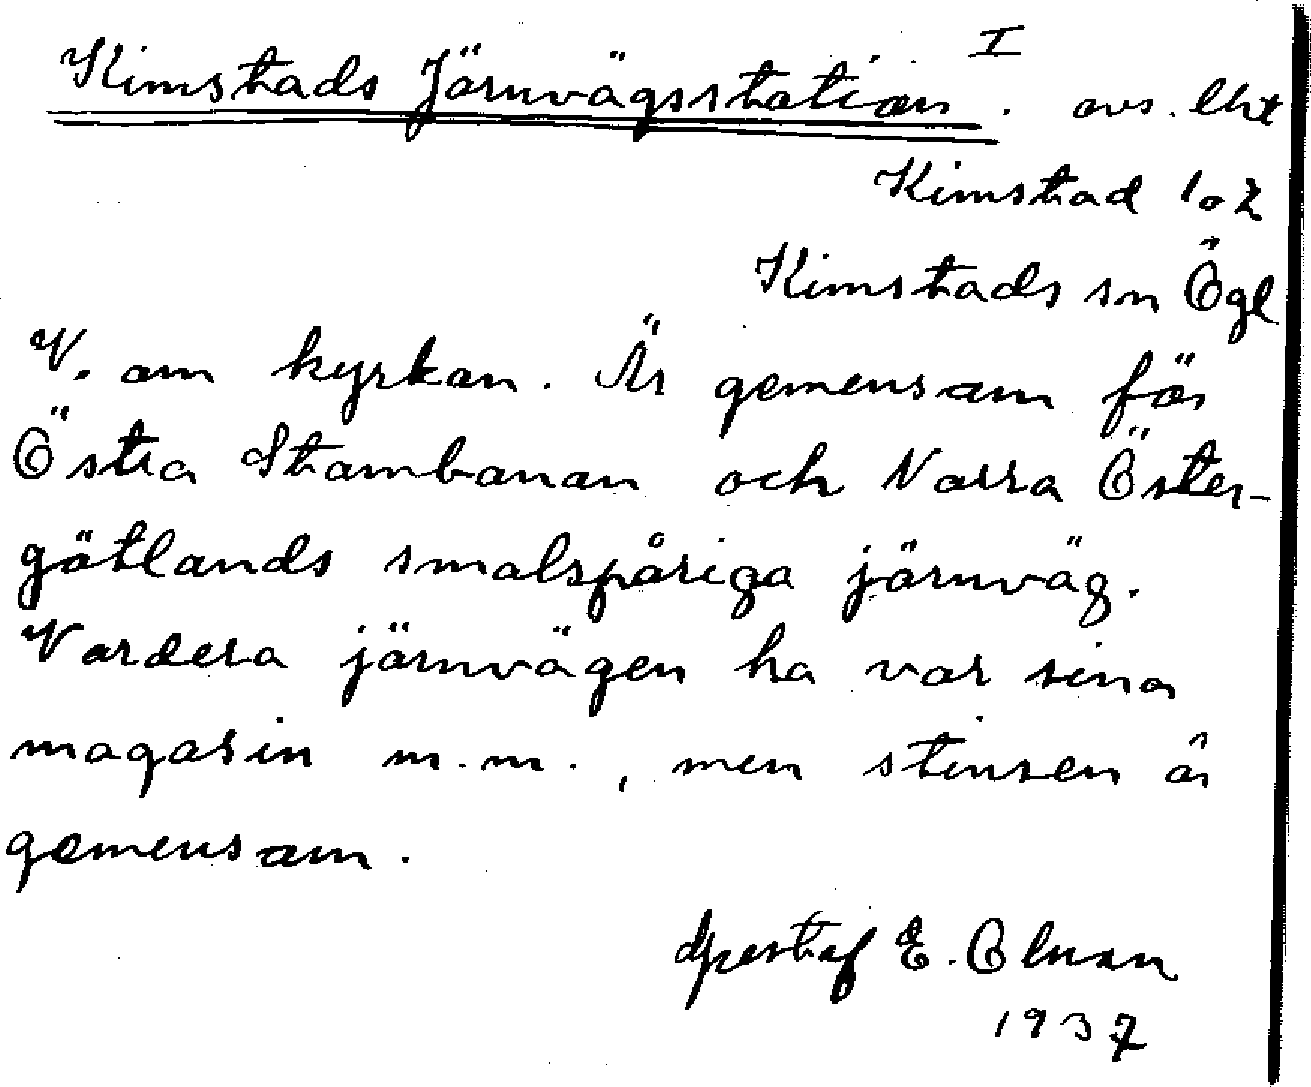 I
Kimstads Järnvägsstation. avs. lht
Kimstad 1 o 2
Kimstads sn Ögl
V. om kyrkan. Är gemensam för
Östra Stambanan och Norra Öster-
götlands smalspåriga järnväg.
Vardera järnvägen ha var sina
magasin m.m., men stinsen är
gemensam.
Gustaf E. Olsson
1937